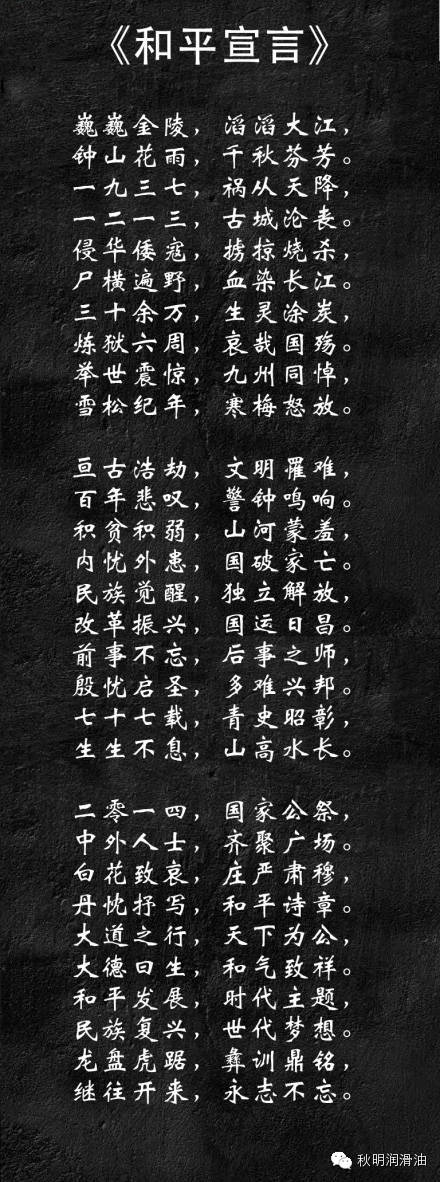 《和平宣言》
巍巍金陵，滔滔大江，
钟山花雨，千秋芬芳。
一九三七，祸从天降，
一二一三，古城沦丧。
侵华倭寇，掳掠烧杀，
尸横遍野，血染长江。
三十余万，生灵涂炭，
炼狱六周，哀哉国殇。
举世震惊，九州同悼，
雪松纪年，寒梅怒放。
亘古浩劫，文明罹难，
百年悲叹，警钟鸣响。
积贫积弱，山河蒙羞，
内忧外患，国破家亡。
民族觉醒，独立解放，
改革振兴，国运日昌。
前事不忘，后事之师，
殷忧启圣，多难兴邦。
七十七载，青史昭彰，
生生不息，山高水长。
二零一四，国家公祭，
中外人士，齐聚广场。
白花致哀，庄严肃穆，
丹忱抒写，和平诗章。
大道之行，天下为公，
大德曰生，和气致祥。
和平发展，时代主题，
民族复兴，世代梦想。
龙盘虎踞，彝训鼎铭，
继往开来，永志不忘。
秋明润滑油